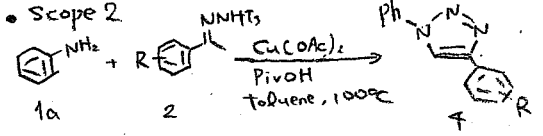 • Scope 2
NH2
1a
+
R
NNHTs
2
Cu(OAc)2
PivOH
toluene, 100℃
Ph
N
N
N
R
4